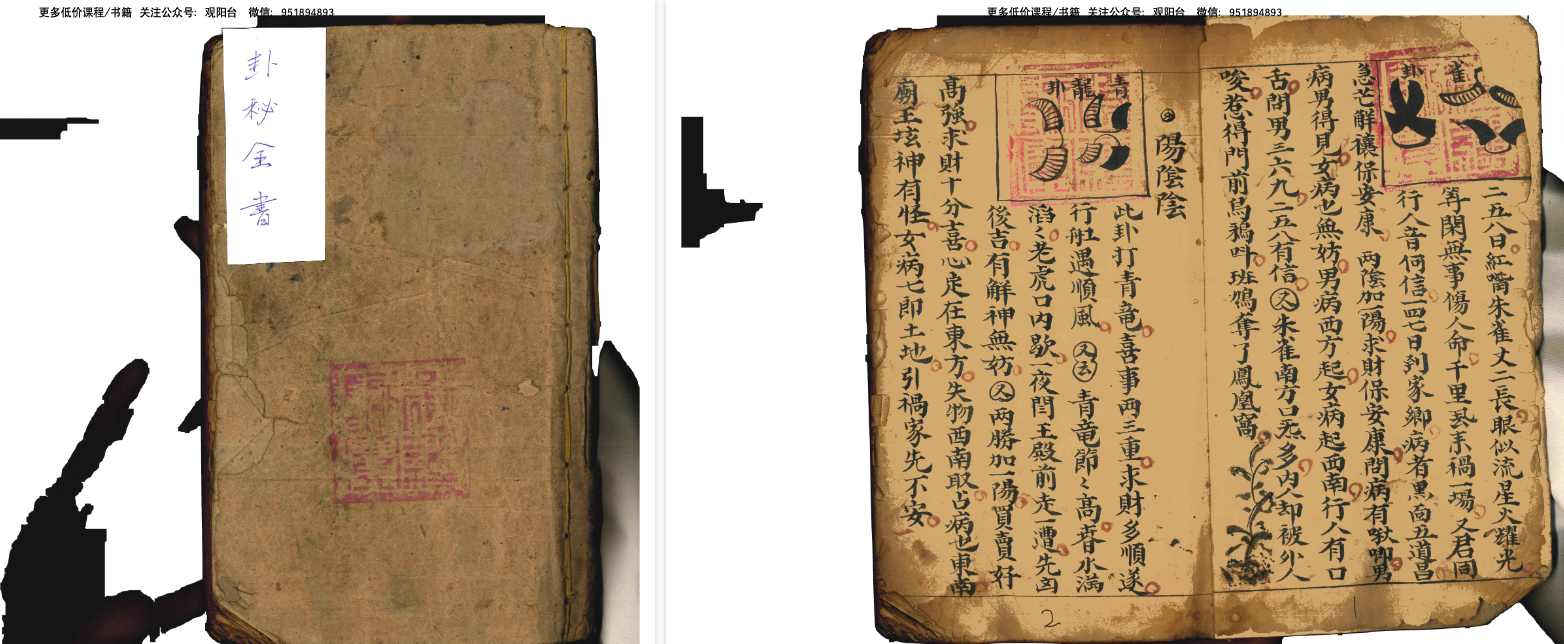 更多低价课程/书籍 关注公众号: 观阳台 微信: 951894893
卦秘全書
更多低价课程/书籍 关注公众号: 观阳台 微信: 951894893
雀
卦
二五八日紅嘴朱雀丈二長眼似流星火耀光
等閑無事傷人命千里忽来禍一場 又君同
行人音何信一四七日到家鄉病者黑向五道昌
急芒觧禳保安康 两陰加一陽求財保安康問病有啾唧男
病男得見女病也無妨男病西方起女病起西南行人有口
舌問男三六九二五八有信又朱雀南方口舌多内人却被外人
唆惹得門前烏鴉叫班鳩奪了鳳凰窩
陽陰陰
青
龍
卦
此卦打青竜喜事两三重求財多順遂
行船遇順風 又云青竜節々高春水满
滔々老虎口内歇一夜閆王殿前走一遭先凶
後吉有解神無妨又两勝加一陽買賣好
高強求財十分喜心定在東方失物西南取占病也東南
廟王坛神有怪女病七即土地引禍家先不安
2
1